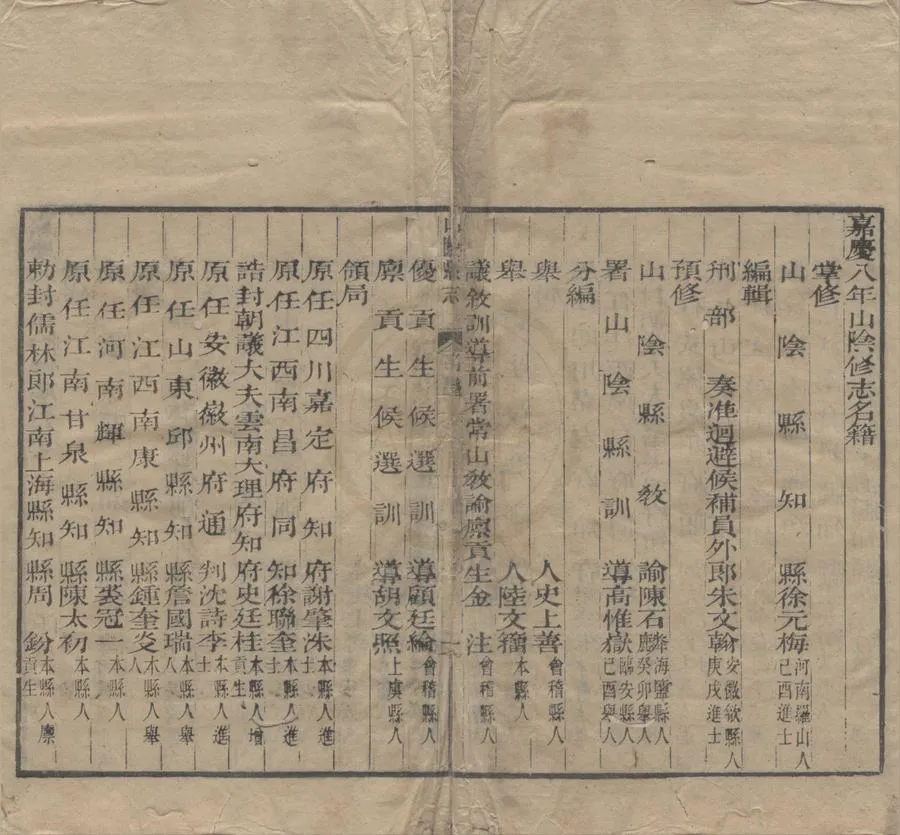 嘉慶八年山陰修志名籍
掌修
山陰縣知縣徐元梅河南羅山人己酉進士
編輯
刑部奏准迴避候補員外郎朱文翰安徽歙縣人庚戌進士
預修
山陰縣教諭陳石麟海鹽縣人癸卯舉人
署山陰縣訓導高惟嶽臨安縣人己酉舉人
分編
舉人史上善會稽縣人
舉人陸文籀本縣人
議敘訓導前署常山教諭廪貢生金注會稽縣人
優貢生候選訓導顧廷綸會稽縣人
廪貢生候選訓導胡文照上虞縣人
領局
原任四川嘉定府知府謝肇洙本縣人進士
原任江西南昌府同知徐聯奎本縣人進士
誥封朝議大夫雲南大理府知府史廷桂本縣人增貢生
原任安徽徽州府通判沈詩李本縣人進士
原任山東邱縣知縣詹國瑞本縣人舉人
原任江西南康縣知縣鍾奎炎本縣人舉人
原任河南輝縣知縣裘冠一本縣人
原任江南甘泉縣知縣陳太初本縣人
勅封儒林郎江南上海縣知縣周鈖本縣人廪貢生